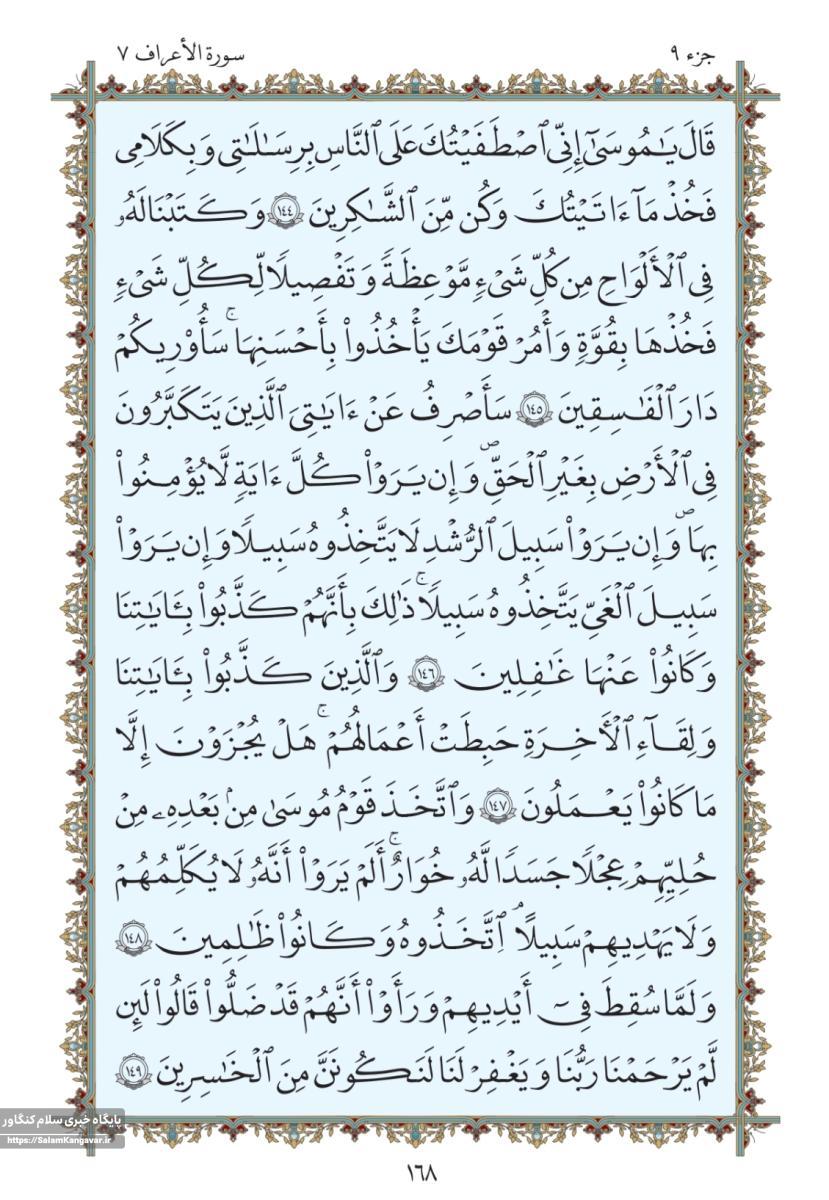 جزء ٩
سورة الأعراف ٧
قَالَ يَـٰمُوسَىٰٓ إِنِّى ٱصۡطَفَيۡتُكَ عَلَى ٱلنَّاسِ بِرِسَـٰلَـٰتِى وَبِكَلَـٰمِى
فَخُذۡ مَآ ءَاتَيۡتُكَ وَكُن مِّنَ ٱلشَّـٰكِرِينَ ١٤٤ وَكَتَبۡنَا لَهُۥ
فِى ٱلۡأَلۡوَاحِ مِن كُلِّ شَىۡءٍ مَّوۡعِظَةً وَتَفۡصِيلًا لِّكُلِّ شَىۡءٍ
فَخُذۡهَا بِقُوَّةٍ وَأۡمُرۡ قَوۡمَكَ يَأۡخُذُوا۟ بِأَحۡسَنِهَاۚ سَأُو۟رِيكُمۡ
دَارَ ٱلۡفَـٰسِقِينَ ١٤٥ سَأَصۡرِفُ عَنۡ ءَايَـٰتِىَ ٱلَّذِينَ يَتَكَبَّرُونَ
فِى ٱلۡأَرۡضِ بِغَيۡرِ ٱلۡحَقِّۖ وَإِن يَرَوۡا۟ كُلَّ ءَايَةٍ لَّا يُؤۡمِنُوا۟
بِهَاۖ وَإِن يَرَوۡا۟ سَبِيلَ ٱلرُّشۡدِ لَا يَتَّخِذُوهُ سَبِيلًا وَإِن يَرَوۡا۟
سَبِيلَ ٱلۡغَىِّ يَتَّخِذُوهُ سَبِيلًاۚ ذَٰلِكَ بِأَنَّهُمۡ كَذَّبُوا۟ بِـَٔايَـٰتِنَا
وَكَانُوا۟ عَنۡهَا غَـٰفِلِينَ ١٤٦ وَٱلَّذِينَ كَذَّبُوا۟ بِـَٔايَـٰتِنَا
وَلِقَآءِ ٱلۡأَخِرَةِ حَبِطَتۡ أَعۡمَـٰلُهُمۡۚ هَلۡ يُجۡزَوۡنَ إِلَّا
مَا كَانُوا۟ يَعۡمَلُونَ ١٤٧ وَٱتَّخَذَ قَوۡمُ مُوسَىٰ مِنۢ بَعۡدِهِۦ مِنۡ
حُلِيِّهِمۡ عِجۡلًا جَسَدًا لَّهُۥ خُوَارٌۚ أَلَمۡ يَرَوۡا۟ أَنَّهُۥ لَا يُكَلِّمُهُمۡ
وَلَا يَهۡدِيهِمۡ سَبِيلًاۘ ٱتَّخَذُوهُ وَكَانُوا۟ ظَـٰلِمِينَ ١٤٨
وَلَمَّا سُقِطَ فِىٓ أَيۡدِيهِمۡ وَرَأَوۡا۟ أَنَّهُمۡ قَدۡ ضَلُّوا۟ قَالُوا۟ لَئِن
لَّمۡ يَرۡحَمۡنَا رَبُّنَا وَيَغۡفِرۡ لَنَا لَنَكُونَنَّ مِنَ ٱلۡخَـٰسِرِينَ ١٤٩
پایگاه خبری سلام کنگاور
https://SalamKangavar.ir
١٦٨